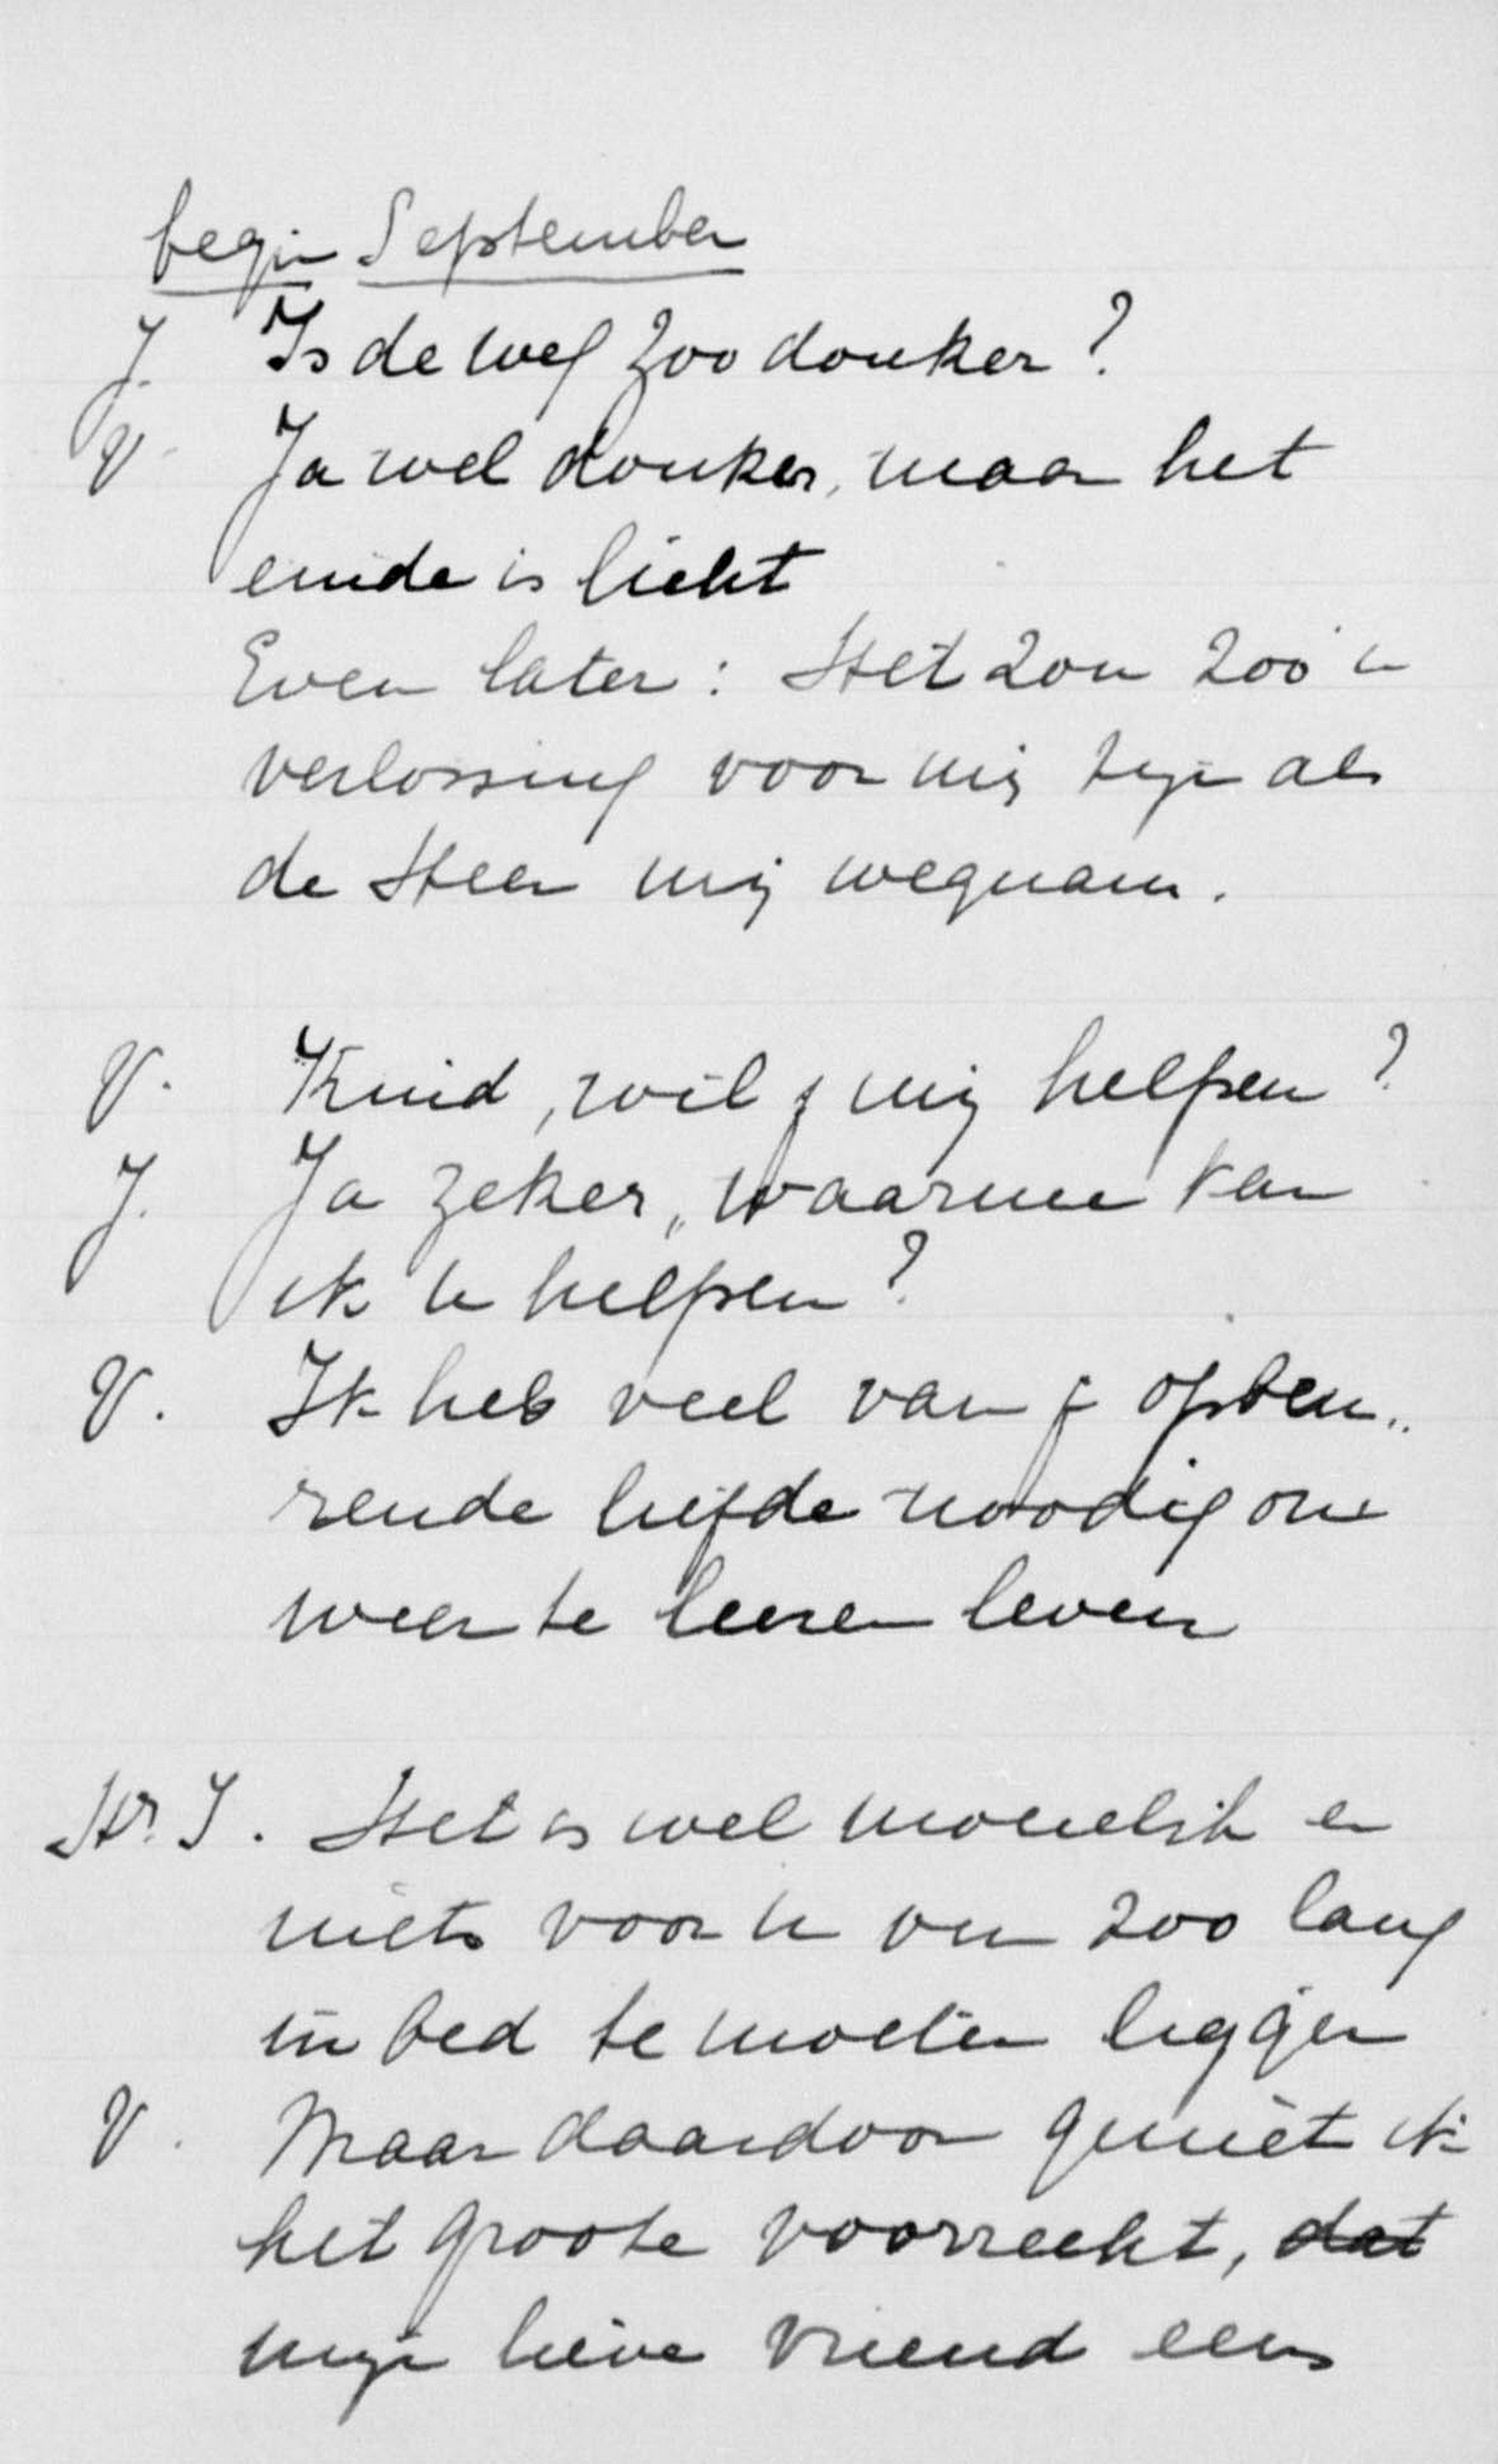 begin September
J. Is de weg zoo donker?
V. Ja wel donker, maar het
einde is licht
Even later: Het zou zoo'n
verlossing voor mij zijn als
de Heer mij wegnam.
V. Kind, wil j mij helpen?
J. Ja zeker, waarmee kan
ik u helpen?
V. Ik heb veel van je opbeu„
rende liefde noodig om
weer te leeren leven
Hr. J. Het is wel moeielijk en
niets voor u om zoo lang
in bed te moeten liggen
V. Maar daardoor geniet ik
het groote voorrecht, dat
mijn lieve vriend eens